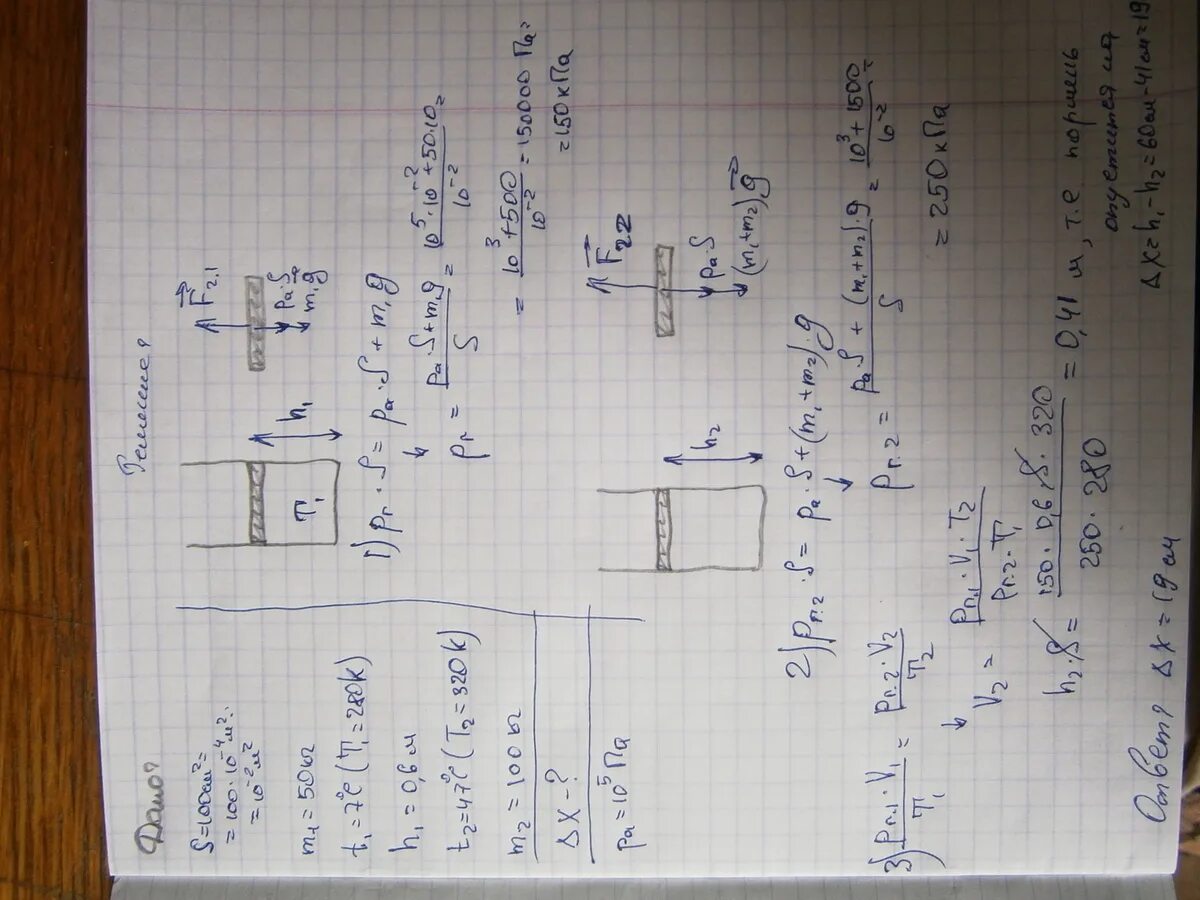 Дано:
S=100см²=
=100·10⁻⁴м²=
=10⁻²м²
m₁=50кг
t₁=7°C (T₁=280K)
h₁=0,6м
t₂=47°C (T₂=320K)
m₂=100кг
Δx-?
pₐ=10⁵Па
Решение:
F₂.₁
T₁
h₁
pₐ·S
m₁g
1) pг·S=pₐ·S+m₁g
↓
pг = (pₐ·S+m₁g)/S = (10⁵·10⁻²+50·10)/10⁻² =
= (10³+500)/10⁻² = 150000 Па=
=150кПа
h₂
F₂₂
pₐ·S
(m₁+m₂)g
2) pп.2·S= pₐ·S+(m₁+m₂)·g
↓
pп.2 = (pₐ·S+(m₁+m₂)·g)/S = (10³+1500)/10⁻² =
= 250кПа
3) (pп.1·V₁)/T₁ = (pп.2·V₂)/T₂
↓
V₂ = (pп.1·V₁·T₂)/(pп.2·T₁)
h₂·S = (150·0,6·S·320)/(250·280) = 0,41 м, т.е поршень
опустится на
Δx=h₁-h₂=60см-41см=19
Ответ: Δx=19 см